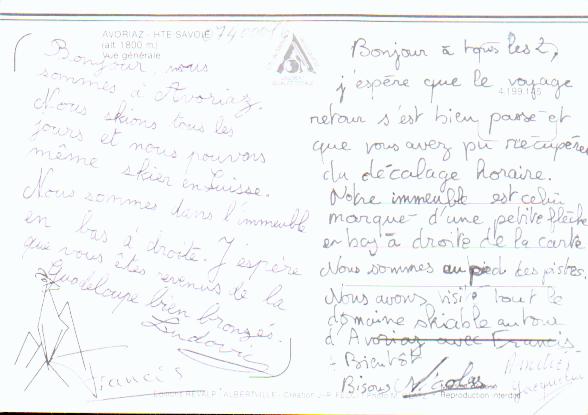 AVORIAZ - HTE SAVOIE
(alt. 1800 m)
Vue générale
Bonjour, nous
sommes à Avoriaz.
Nous skions tous les
jours et nous pouvons
même skier en Suisse.
Nous sommes dans l'immeuble
en bas à droite. J'espère
que vous êtes revenus de la
Guadeloupe bien bronzés.
Ludovic
Francis
Bonjour à tous les 2,
j'espère que le voyage
4.199.145
retour s'est bien passé et
que vous avez pu récupérer
du décalage horaire.
Notre immeuble est celui
marqué d'une petite flèche
en bas à droite de la carte
Nous sommes au pied des pistes.
Nous avons visité tout le
domaine skiable autour
d'Avoriaz avec Francis
- Bientôt
Bisous Nicolas
Reproduction interdite